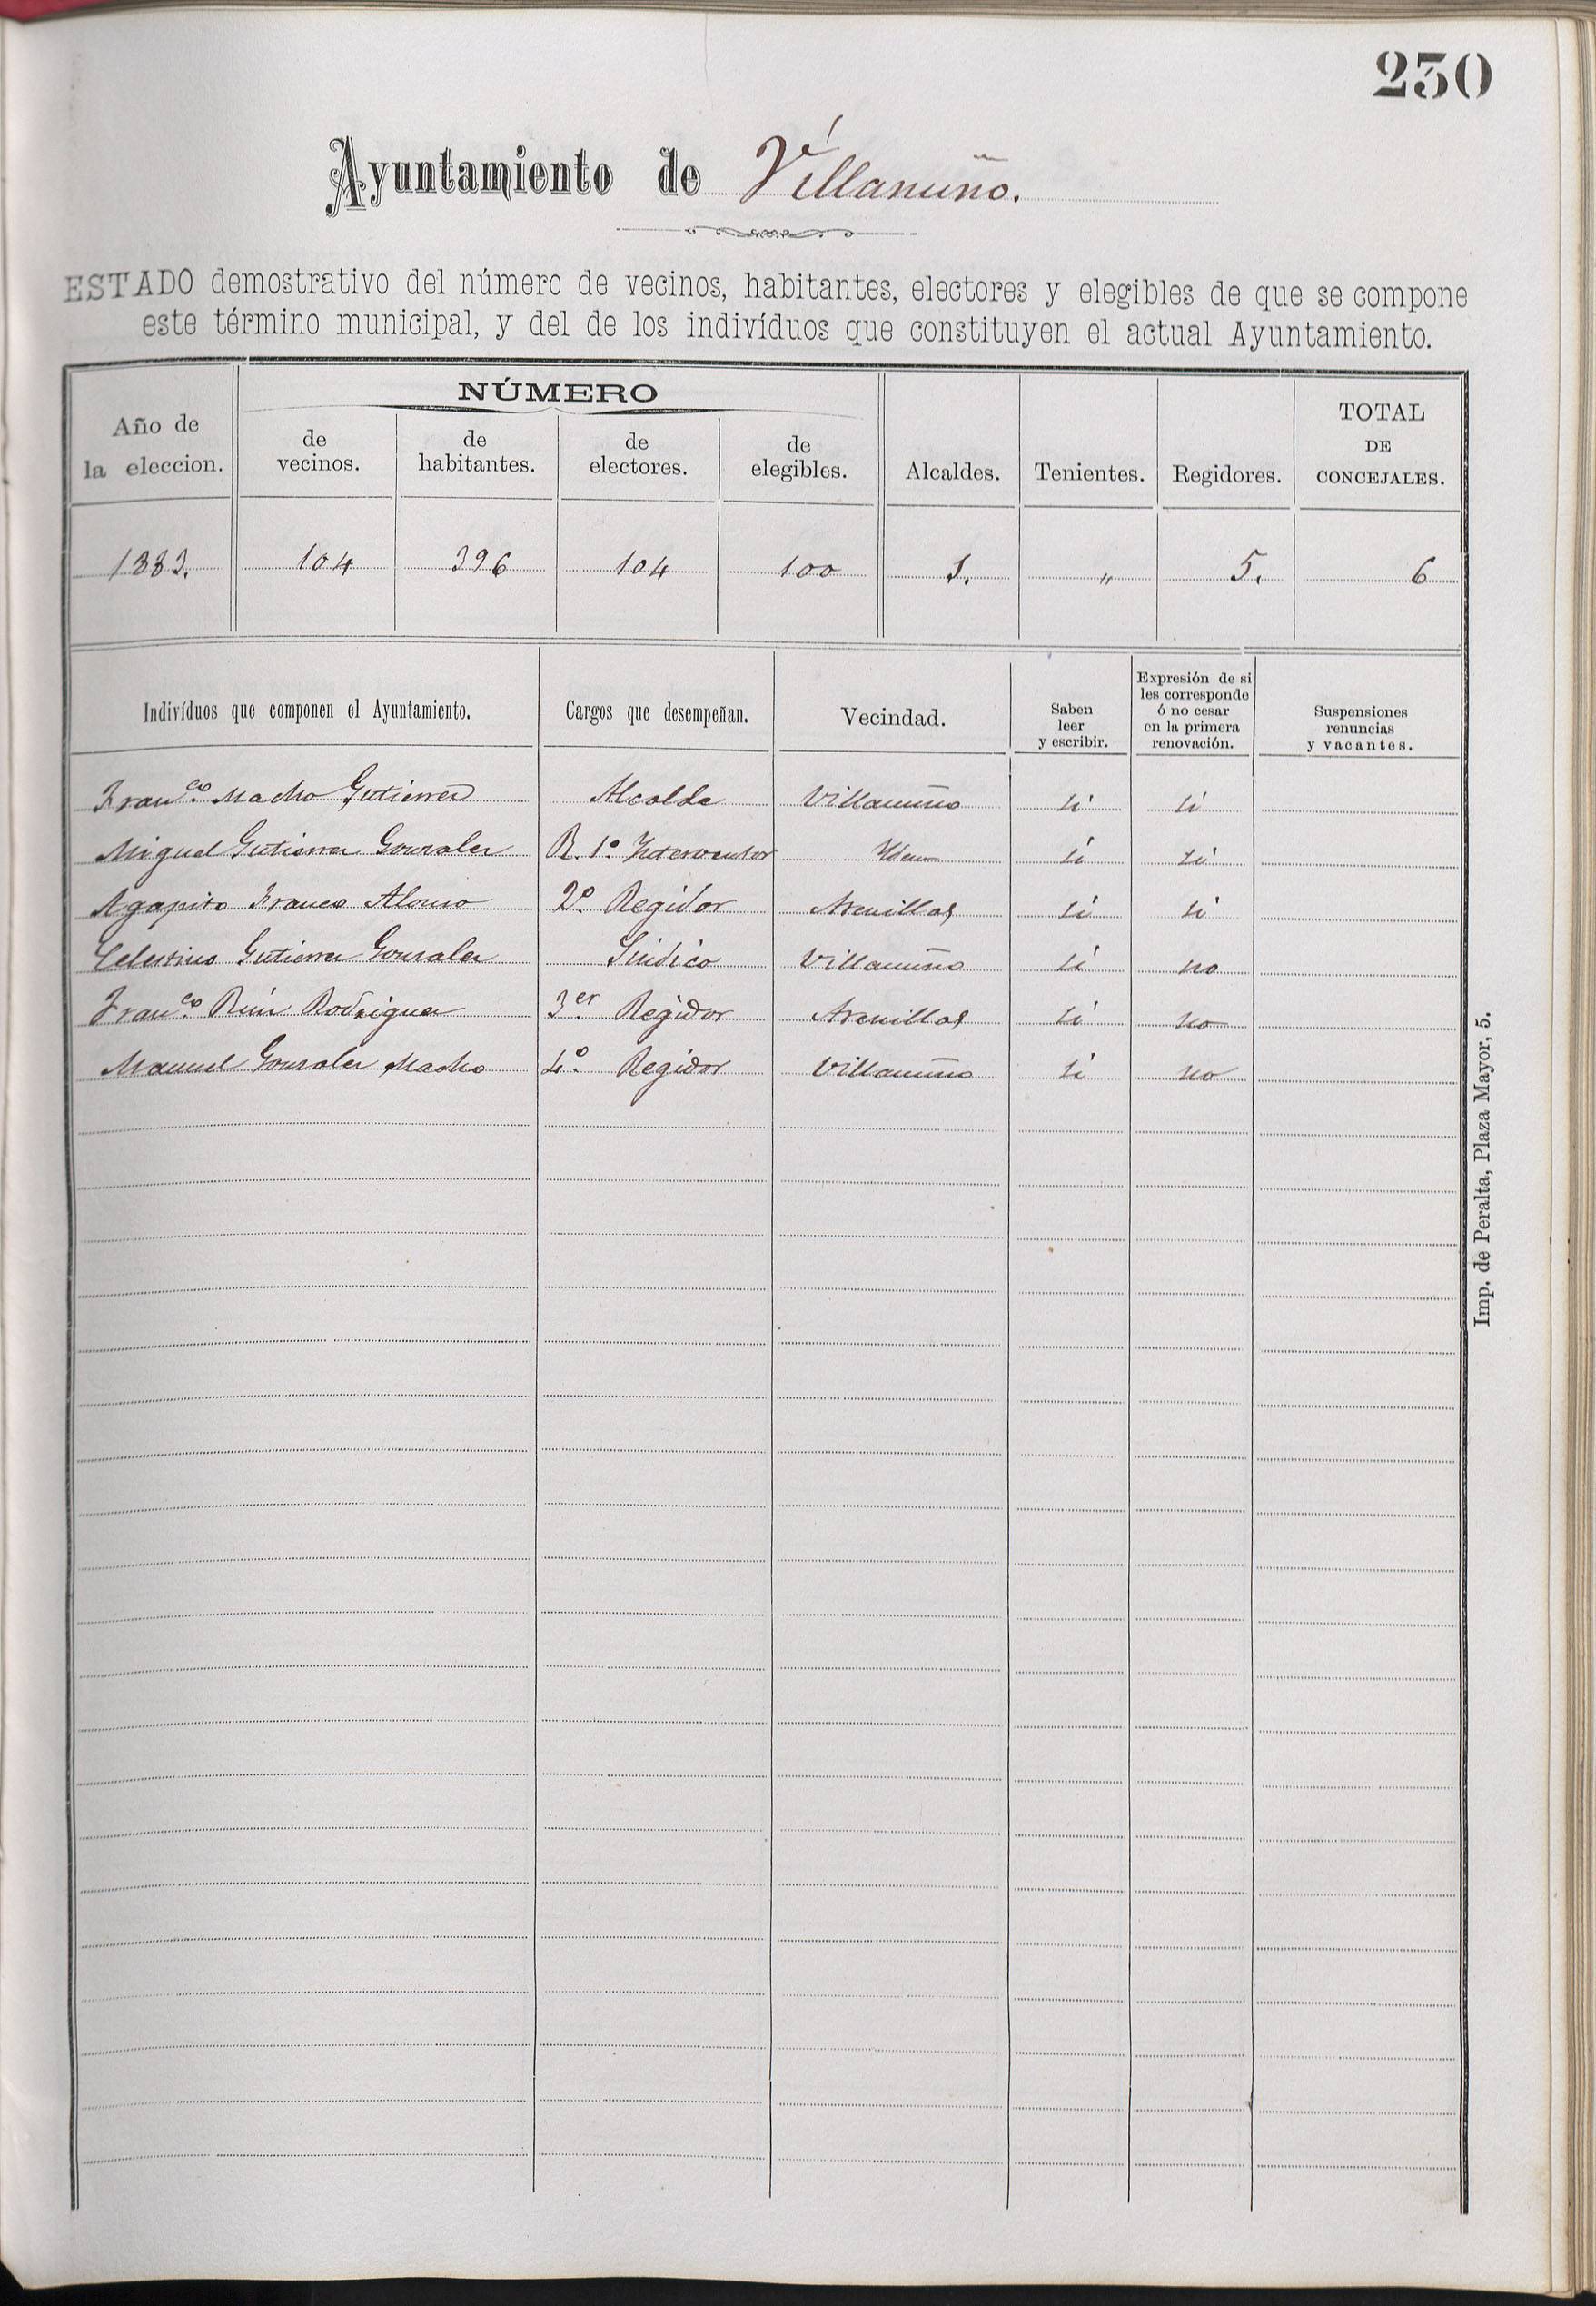 230
Ayuntamiento de Villanuño.
ESTADO demostrativo del número de vecinos, habitantes, electores y elegibles de que se compone
este término municipal, y del de los indivíduos que constituyen el actual Ayuntamiento.
Año de la eleccion. | NÚMERO de vecinos. | de habitantes. | de electores. | de elegibles. | Alcaldes. | Tenientes. | Regidores. | TOTAL DE CONCEJALES.
1883. | 104 | 396 | 104 | 100 | 1. | " | 5. | 6
Indivíduos que componen el Ayuntamiento. | Cargos que desempeñan. | Vecindad. | Saben leer y escribir. | Expresión de si les corresponde ó no cesar en la primera renovación. | Suspensiones renuncias y vacantes.
Franco. Macho Gutierrez | Alcalde | Villanuño | si | si
Miguel Gutierrez Gonzalez | R. 1º Interventor | Idem | si | si
Agapito Franco Alonso | 2º. Regidor | Arenillas | si | si
Celestino Gutierrez Gonzalez | Sindico | Villanuño | si | no
Franco. Ruiz Rodriguez | 3er. Regidor | Arenillas | si | no
Manuel Gonzalez Macho | 4º. Regidor | Villanuño | si | no
Imp. de Peralta, Plaza Mayor, 5.